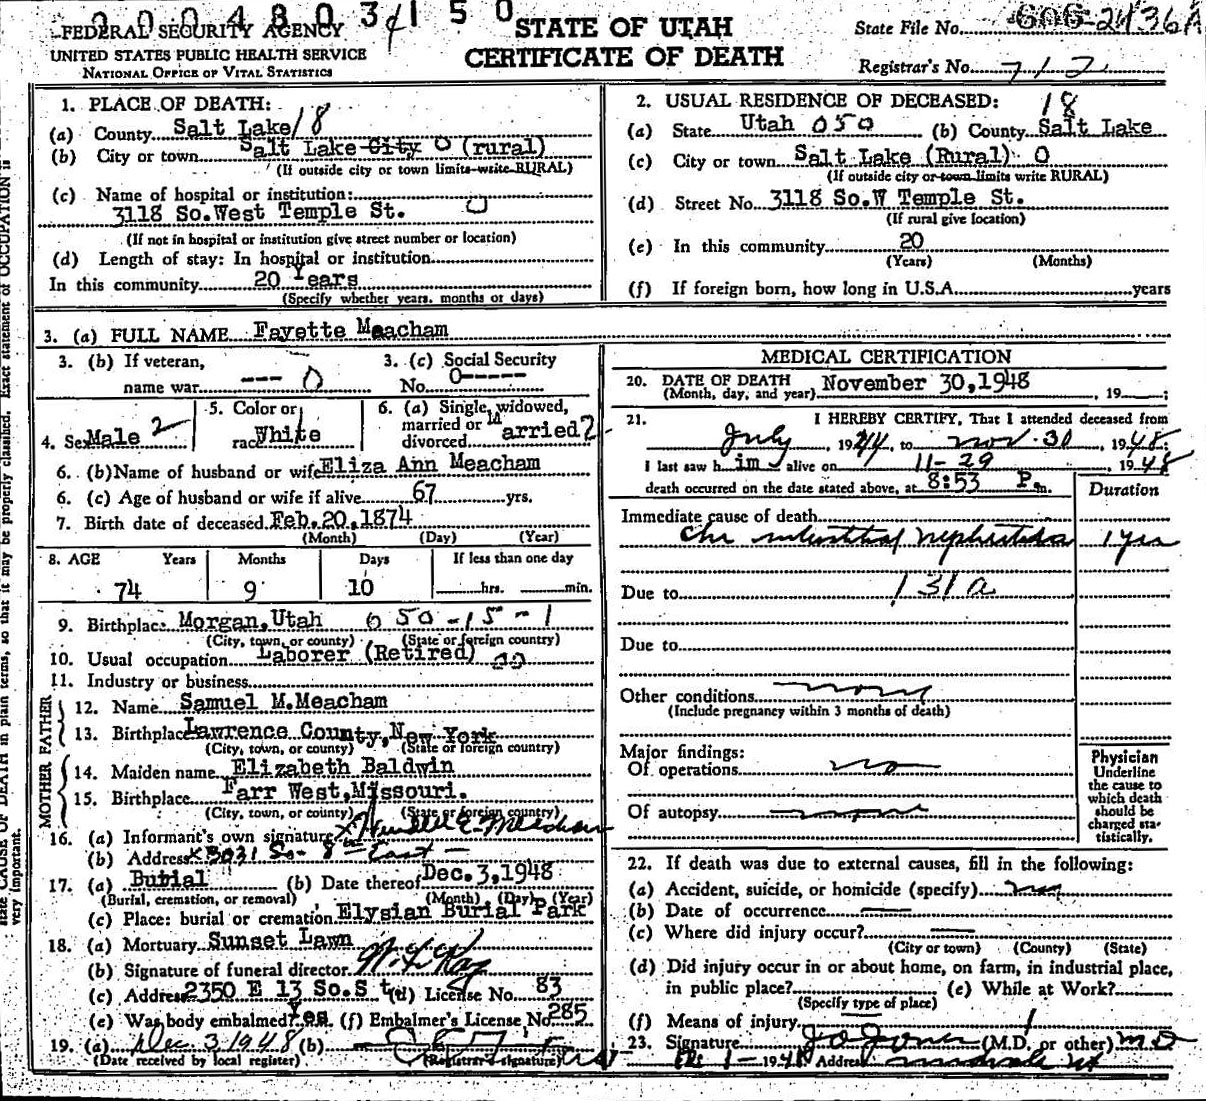 2004803 150
FEDERAL SECURITY AGENCY
UNITED STATES PUBLIC HEALTH SERVICE
NATIONAL OFFICE OF VITAL STATISTICS
STATE OF UTAH
CERTIFICATE OF DEATH
State File No. 2436A
Registrar's No. 712
1. PLACE OF DEATH:
(a) County Salt Lake 18
(b) City or town Salt Lake City 0 (rural)
(If outside city or town limits write RURAL)
(c) Name of hospital or institution:
3118 So.West Temple St. 0
(If not in hospital or institution give street number or location)
(d) Length of stay: In hospital or institution
In this community 20 Years
(Specify whether years, months or days)
2. USUAL RESIDENCE OF DECEASED: 18
(a) State Utah 050 (b) County Salt Lake
(c) City or town Salt Lake (Rural) 0
(If outside city or town limits write RURAL)
(d) Street No. 3118 So.W Temple St.
(If rural give location)
(e) In this community 20
(Years) (Months)
(f) If foreign born, how long in U.S.A. years
3. (a) FULL NAME Fayette Meacham
3. (b) If veteran, name war --- 0
3. (c) Social Security No. 0-----
4. Sex Male 2
5. Color or race White
6. (a) Single, widowed, married or divorced Married 2
6. (b) Name of husband or wife Eliza Ann Meacham
6. (c) Age of husband or wife if alive 67 yrs.
7. Birth date of deceased Feb.20,1874
(Month) (Day) (Year)
8. AGE Years Months Days If less than one day
74 9 10 hrs. min.
9. Birthplace Morgan,Utah 050-15-1
(City, town, or county) (State or foreign country)
10. Usual occupation Laborer (Retired) 00
11. Industry or business
FATHER
12. Name Samuel M.Meacham
13. Birthplace Lawrence County,New York
(City, town, or county) (State or foreign country)
MOTHER
14. Maiden name Elizabeth Baldwin
15. Birthplace Farr West,Missouri.
(City, town, or county) (State or foreign country)
16. (a) Informant's own signature x E. Meacham
(b) Address x 3031 So- 8th East
17. (a) Burial (b) Date thereof Dec.3,1948
(Burial, cremation, or removal) (Month) (Day) (Year)
(c) Place: burial or cremation Elysian Burial Park
18. (a) Mortuary Sunset Lawn
(b) Signature of funeral director
(c) Address 2350 E 13 So.St. (d) License No. 83
(e) Was body embalmed? Yes (f) Embalmer's License No. 285
19. (a) Dec 3 1948 (b)
(Date received by local registrar) (Registrar's signature)
MEDICAL CERTIFICATION
20. DATE OF DEATH
(Month, day, and year) November 30,1948, 19 ;
21. I HEREBY CERTIFY, That I attended deceased from
July, 1944, to Nov. 30, 1948.
I last saw him alive on 11-29, 1948
death occurred on the date stated above, at 8:53 P.m.
Duration
Immediate cause of death
Chr interstitial nephritis 1 yr
Due to 131a
Due to
Other conditions none
(Include pregnancy within 3 months of death)
Major findings:
Of operations no
Of autopsy none
Physician
Underline
the cause to
which death
should be
charged sta-
tistically.
22. If death was due to external causes, fill in the following:
(a) Accident, suicide, or homicide (specify)
(b) Date of occurrence
(c) Where did injury occur?
(City or town) (County) (State)
(d) Did injury occur in or about home, on farm, in industrial place,
in public place? (e) While at Work?
(Specify type of place)
(f) Means of injury
23. Signature Jones (M.D. or other) M D
1-1948 Address Midvale Ut
state CAUSE OF DEATH in plain terms, so that it may be properly classified. Exact statement of OCCUPATION is
very important.